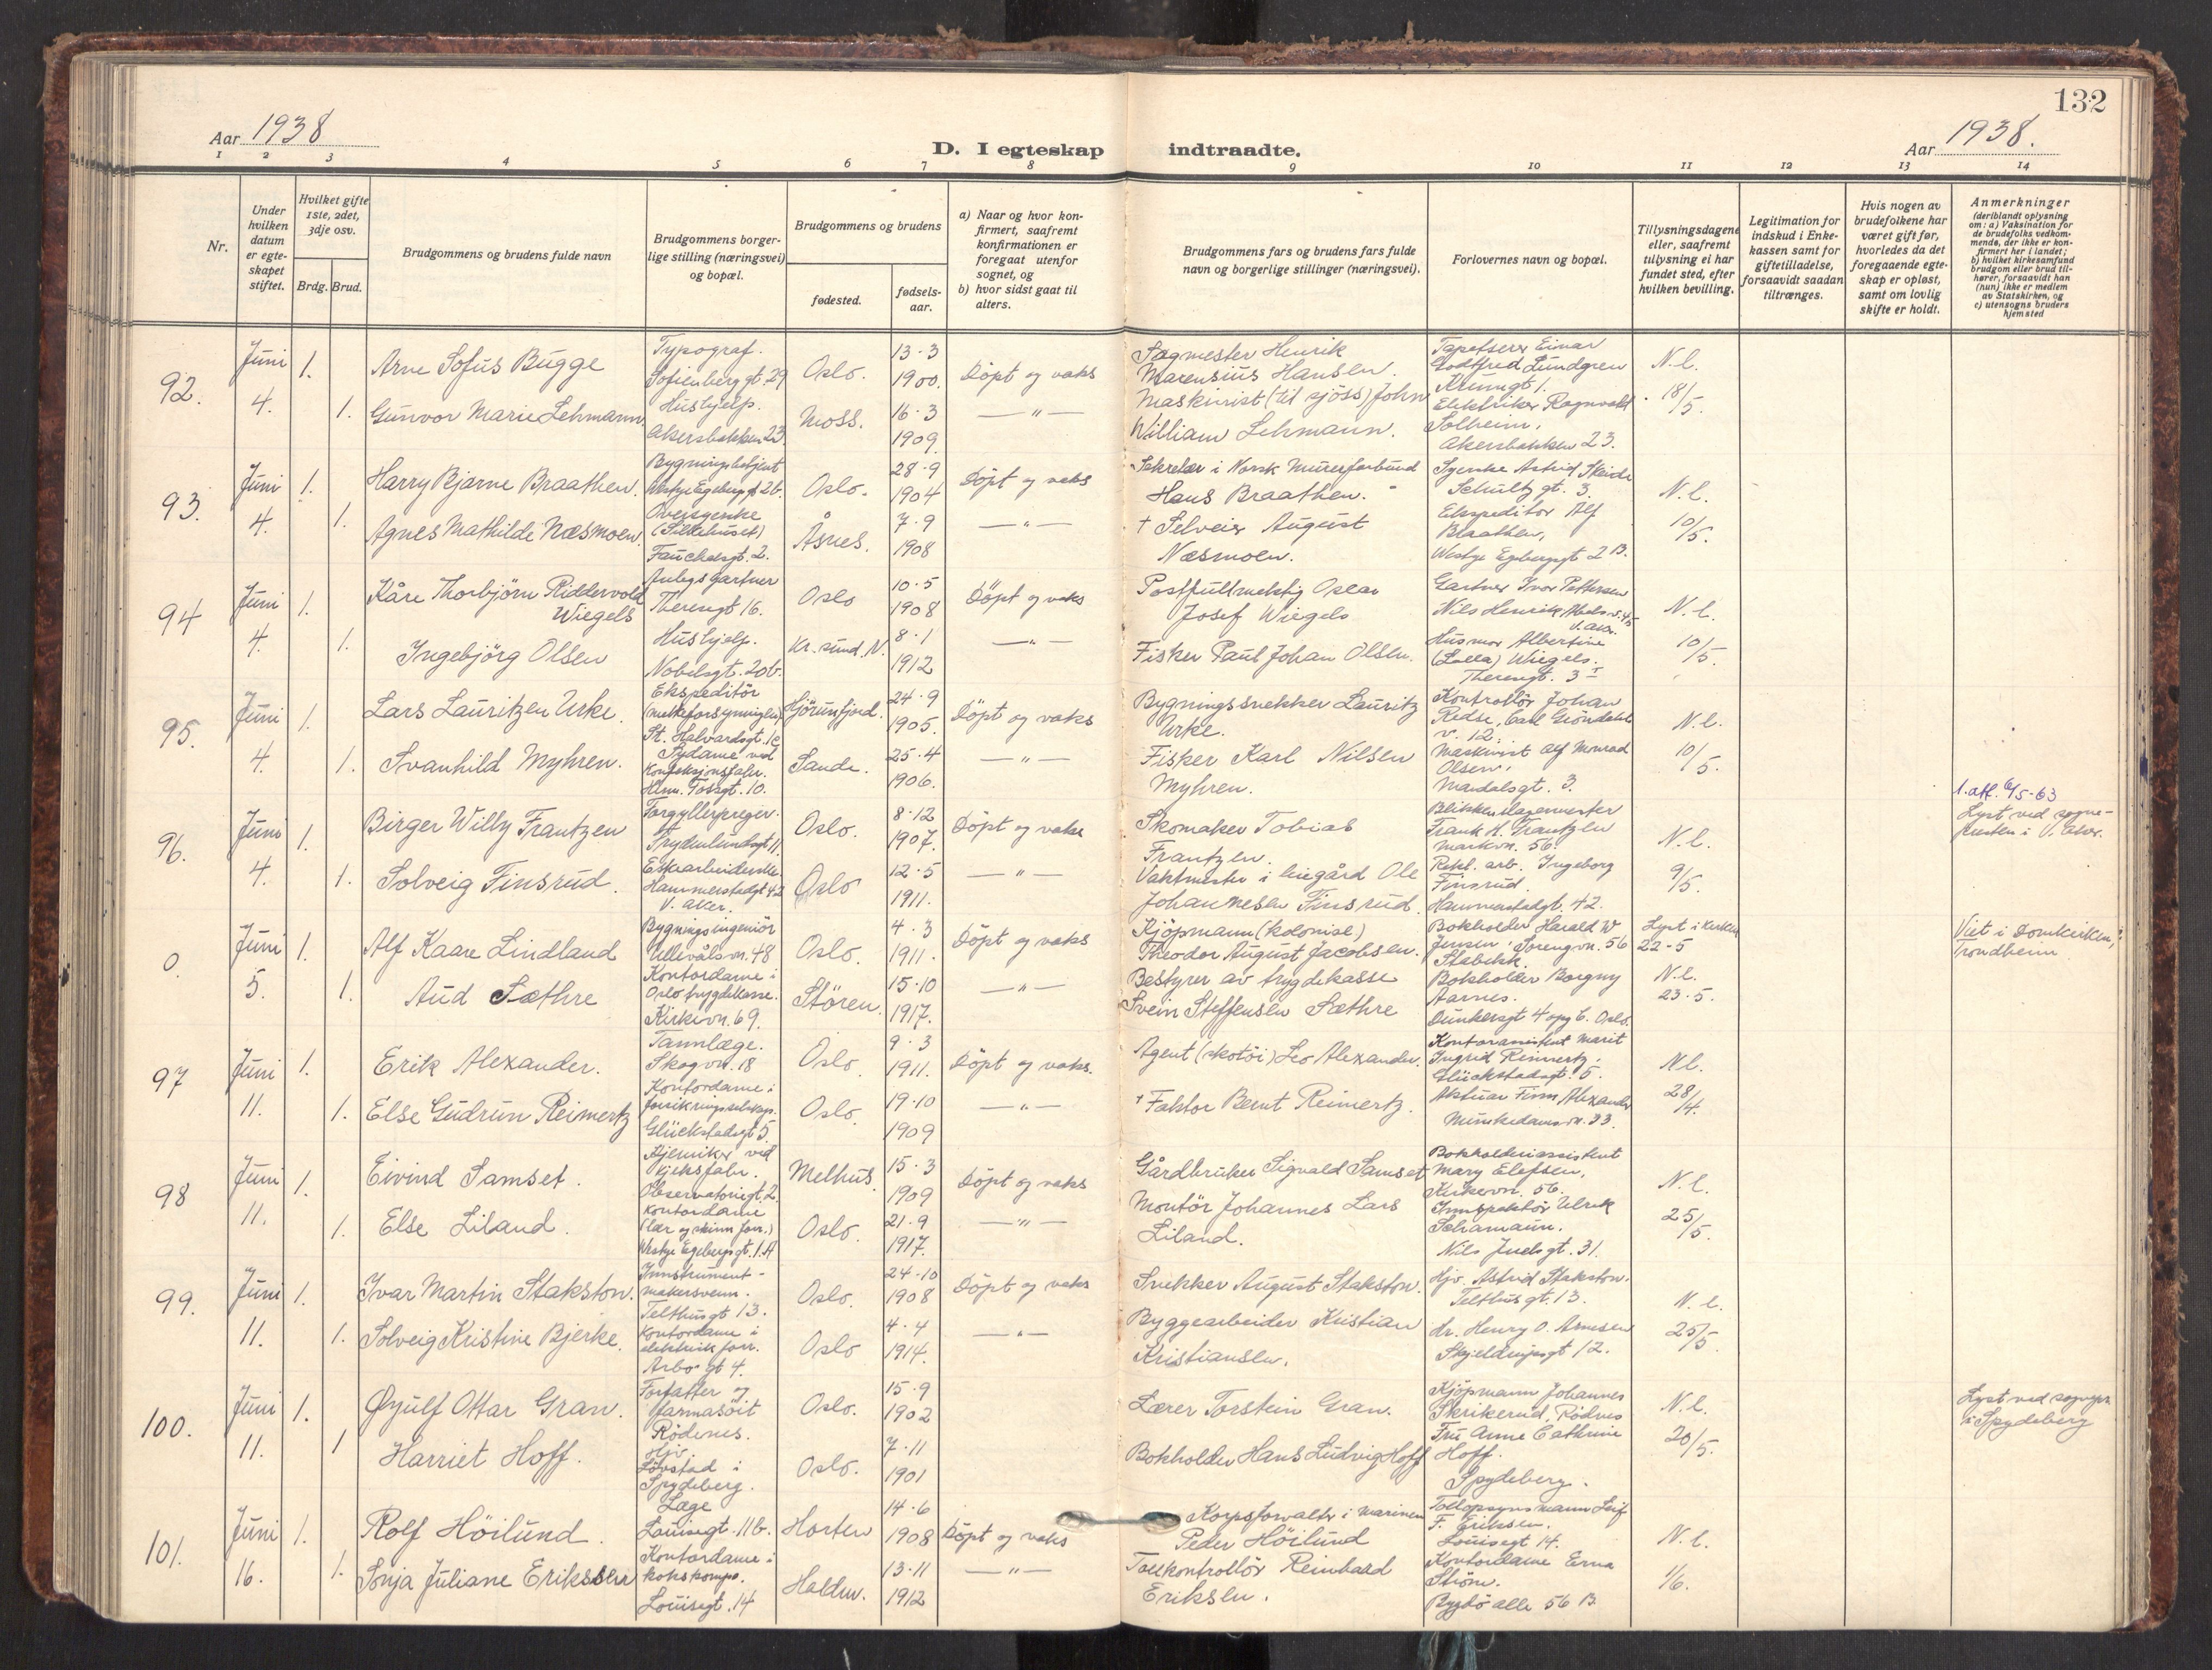 132
Aar 1938
D. I egteskap indtraadte.
Aar 1938.
1 2 3 4 5 6 7 8 9 10 11 12 13 14
Nr.
Under hvilken datum er egteskapet stiftet.
Hvilket gifte 1ste, 2det, 3dje osv.
Brdg. Brud.
Brudgommens og brudens fulde navn
Brudgommens borgerlige stilling (næringsvei) og bopæl.
Brudgommens og brudens
fødested.
fødselsaar.
a) Naar og hvor konfirmert, saafremt konfirmationen er foregaat utenfor sognet, og
b) hvor sidst gaat til alters.
Brudgommens fars og brudens fars fulde navn og borgerlige stillinger (næringsvei).
Forlovernes navn og bopæl.
Tillysningsdagene eller, saafremt tillysning ei har fundet sted, efter hvilken bevilling.
Legitimation for indskud i Enkekassen samt for giftetilladelse, forsaavidt saadan tiltrænges.
Hvis nogen av brudefolkene har været gift før, hvorledes da det foregaaende egteskap er opløst, samt om lovlig skifte er holdt.
Anmerkninger
(deriblandt oplysning om: a) Vaksination for de brudefolks vedkommende, der ikke er konfirmert her i landet; b) hvilket kirkesamfund brudgom eller brud tilhører, forsaavidt han (hun) ikke er medlem av Statskirken, og c) utensogns bruders hjemsted
92. Juni 4. 1. Arne Sofus Bugge
Typograf. Sofienberggt. 29
Oslo. 13-3 1900. Döpt og vaks
Sagmester Henrik Marensius Hansen.
Tapetserer Einar Godtfred Lundgren
Krumgt 1.
N.l. 18/5.
1. Gunvor Marie Lehmann
Hushjelp. Akersbakken 23.
Moss. 16-3 1909. —"—
Maskinist (til sjöss) John William Lehmann.
Elektriker Ragnvald Solheim, Akersbakken 23.
93. Juni 4. 1. Harry Bjarne Braathen.
Bygningsbetjent Westye Egebergsgt 2b.
Oslo. 28-9 1904 Döpt og vaks
Sekretær i Norsk Murerforbund Hans Braathen.
Syerske Astrid Skeide
Schultzgt. 3.
N.l. 10/5.
1. Agnes Mathilde Næsmoen.
(Silkehuset) Fauchalsgt. 2.
Åsnes. 7-9 1908 —"—
† Selveier August Næsmoen.
Ekspeditör Alf Braathen, Westye Egebergsgt 2 B.
94 Juni 4. 1. Kåre Thorbjörn Riddervold Wiegels
Anlegsgartner Theresgt 16.
Oslo 10-5 1908 Döpt og vaks
Postfullmektig Oscar Josef Wiegels
Gartner Ivar Pettersen
Nils Henrik Abels v. 45 V. Aker.
N.l. 10/5.
1. Ingebjörg Olsen
Hushjelp. Nobelsgt. 20b.
Kr. sund. N. 8-1 1912 —"—
Fisker Paul Johan Olsen.
Husmor Albertine (Lalla) Wiegels. Theresgt. 3 I
95. Juni 4. 1. Lars Lauritzen Urke.
Ekspeditör (melkeforsyningen) St. Halvardsgt. 1c
Hjörunfjord. 24-9 1905. Döpt og vaks
Bygningssnekker Lauritz Urke.
Kontrollör Johan Redse, Carl Gröndahls v. 12.
N.l. 10/5.
1. Svanhild Myhren.
Sydame ved konfeksjonsfabr.
Sande. 25-4 1906. —"—
Fisker Karl Nilsen Myhren.
Maskinist Alf Monrad Olsen, Mandalsgt. 3.
96. Juni 4. 1. Birger Willy Frantzen
Frydenlundsgt 11.
Oslo. 8-12 1907. Döpt og vaks
Skomaker Tobias Frantzen.
Blikkenslagermester Frank H. Frantzen Markvn. 56.
N.l. 9/5.
1. att. 6/5-63
Lyst ved sognepresten i V. Aker.
1. Solveig Finsrud.
Eskearbeiderske Hammerstadgt 42 V. Aker.
Oslo 12-5 1911. —"—
Vaktmester i leiegård Ole Johannesen Finsrud.
Rekl. arb. Ingeborg Finsrud. Hammerstadgt. 42.
0. Juni 5. 1. Alf Kaare Lindland
Bygningsingeniör Ullevålsvn. 48
Oslo. 4-3 1911. Döpt og vaks
Kjöpmann (kolonial) Theodor August Jacobsen.
Bokholder Harald W Jensen, Sorengvn. 56 Stabekk.
Lyst i kirken 22-5
Viet i Domkirken, Trondheim
1. Aud Sæthre
Kontordame i Oslo trygdekasse. Kirkevn. 69.
Stören. 15-10 1917. —"—
Bestyrer av trygdekasse Svein Steffensen Sæthre
Bokholder Borgny Aarnes. Dunkersgt 4 opg C. Oslo.
N.l. 23-5.
97 Juni 11. 1. Erik Alexander.
Tannlæge. Skogvn. 18
Oslo. 9-3 1911. Döpt og vaks.
Agent (skotöi) Leo Alexander.
Kontorassistent Marit Ingrid Reimertz. Glückstadsgt. 5.
N.l. 28/4.
1. Else Gudrun Reimertz
Kontordame i forsikringsselskap. Glückstadsgt 5.
Oslo. 19-10 1909 —"—
† Faktor Bernt Reimertz.
Aktuar Finn Alexander Munkedamsvn. 33.
98 Juni 11. 1. Eivind Samset.
Kjemiker ved kjeksfabr. Observatoriegt. 2
Melhus. 15-3 1909 Döpt og vaks
Gårdbruker Sigvald Samset
Bokholderiassistent Mary Elefsen, Kirkevn. 56.
N.l. 25/5.
1. Else Liland.
Kontordame (lær og skinn forr.) Westye Egebergsgt. 1. A
Oslo. 21-9 1917. —"—
Montör Johannes Lars Liland.
Innspektör Ulrik Schamaun. Nils Juelsgt. 31.
99. Juni 11. 1. Ivar Martin Stakston.
Innstrumentmakersvenn. Telthusgt 13.
Oslo. 24-10 1908 Döpt og vaks
Snekker August Stakston.
Hjv. Astrid Stakston. Telthusgt. 13.
N.l. 25/5.
1. Solveig Kristine Bjerke.
Kontordame i elektrik forr. Arbosgt 4.
Oslo 4-4 1914. —"—
Byggearbeider Kristian Kristiansen.
Hr. Henry O. Arnesen Skjeldrupsgt 12.
100. Juni 11. 1. Øyulf Ottar Gran.
Forfatter og farmasöit Rödenes.
Oslo. 15-9 1902
Lærer Torstein Gran.
Kjöpmann Johannes Skrikerud, Rödnes
N.l. 20/5.
Lyst ved sognepr. i Spydeberg
1 Harriet Hoff.
Hjv. Lövstad i Spydeberg.
Oslo. 7-11 1901
Bokholder Hans Ludvig Hoff
Fru Anne Cathrine Hoff. Spydeberg.
101. Juni 16. 1. Rolf Höilund.
Læge Louisegt. 11b.
Horten 14-6 1908 Döpt og vaks
Korpsforvalter i marinen Peder Höilund
Tollopsynsmann Leif F. Eriksen. Louisegt 14.
N.l. 1/6.
1. Sonja Juliane Eriksen
Kontordame i kokskomp. Louisegt. 14
Halden. 13-11 1912 —"—
Tollkontrollör Reinhard Eriksen.
Kontordame Erna Ström. Bygdö alle 56 B.